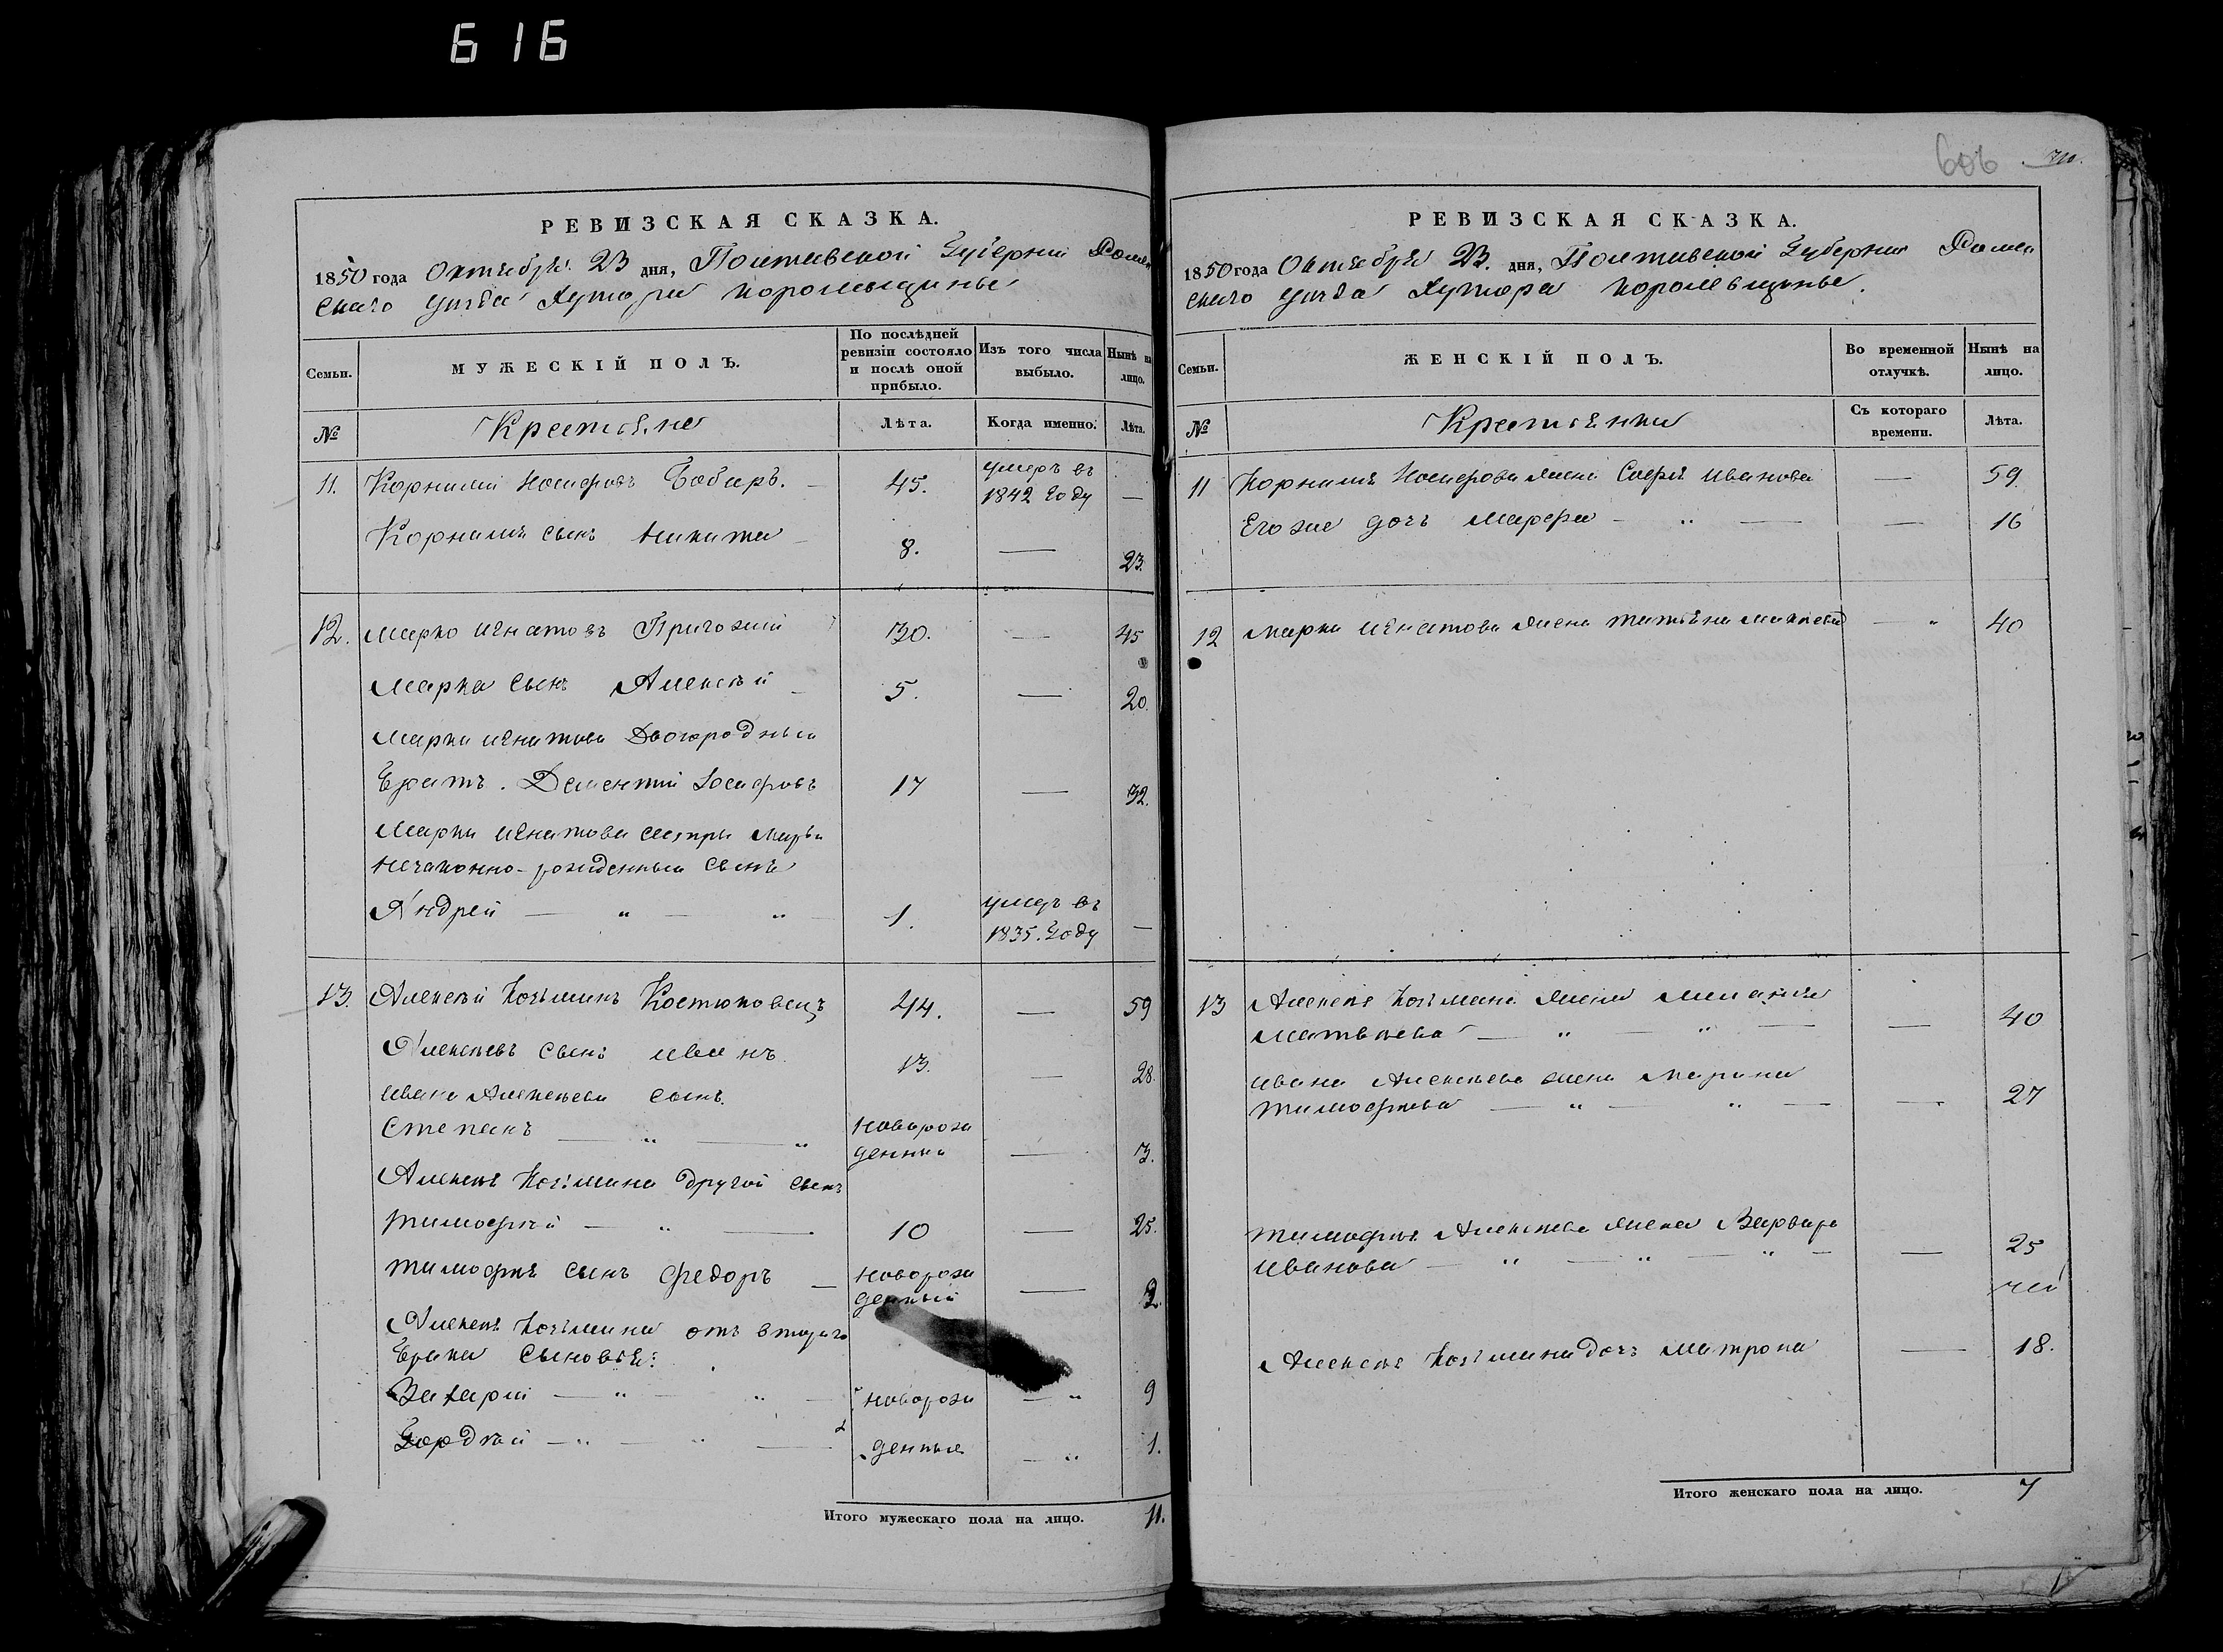 616
606
710.
РЕВИЗСКАЯ СКАЗКА.
1850 года Октября 23 дня, Полтавской Губерніи Ромен
скаго уѣзда Хутора Королевщины
Семьи. МУЖЕСКІЙ ПОЛЪ. По послѣдней ревизіи состояло и послѣ оной прибыло. Изъ того числа выбыло. Нынѣ на лицо.
№ Крестьяне Лѣта. Когда именно. Лѣта.
11. Корнилій Іосифовъ Бобырь. 45. умеръ въ 1842 году —
Корнилія сынъ Никита — 8. — 23.
12. Марко Игнатовъ Пригожій 30. — 45
Марка сынъ Алексѣй — 5. — 20.
Марка Игнатова Двоюродный
Братъ. Дементій Іосифовъ 17 — 32.
Марка Игнатова сестры Марьи
незаконно-рожденный сынъ
Андрей — „ — „ 1. умеръ въ 1835. году —
13. Алексѣй Козьминъ Костюковецъ 44. — 59
Алексѣевъ сынъ Иванъ 13. — 28.
Ивана Алексѣева сынъ
Степанъ — „ — „ новорож денный — 3.
Алексѣя Козьмина другой сынъ
Тимофѣй — „ — 10 — 25.
Тимофѣя сынъ Федоръ — новорож денный — 2.
Алексѣя Козьмина отъ втораго
Брака сыновья:
Захарій — „ — „ — новорож — „ 9
Гордѣй — „ — „ — денные — „ 1.
Итого мужескаго пола на лицо. 11.
РЕВИЗСКАЯ СКАЗКА.
1850 года Октября 23. дня, Полтавской Губерніи Ромен
скаго уѣзда Хутора Королевщины.
Семьи. ЖЕНСКІЙ ПОЛЪ. Во временной отлучкѣ. Нынѣ на лицо.
№ Крестьянки Съ котораго времени. Лѣта.
11 Корнилія Іосифова жена Софія Иванова — 59.
Его же дочь Марфа — „ — — 16
12 Марка Игнатова жена Татьяна — „ 40
13 Алексѣя Козьмина жена Меланія
Матвѣева — „ — „ — — 40
Ивана Алексѣева жена Марина
Тимофѣева — „ — „ — — 27
Тимофѣя Алексѣева жена Варвара
Иванова — „ — „ — „ — — 25
Алексѣя Козьмина дочь Матрона — 18.
Итого женскаго пола на лицо. 7